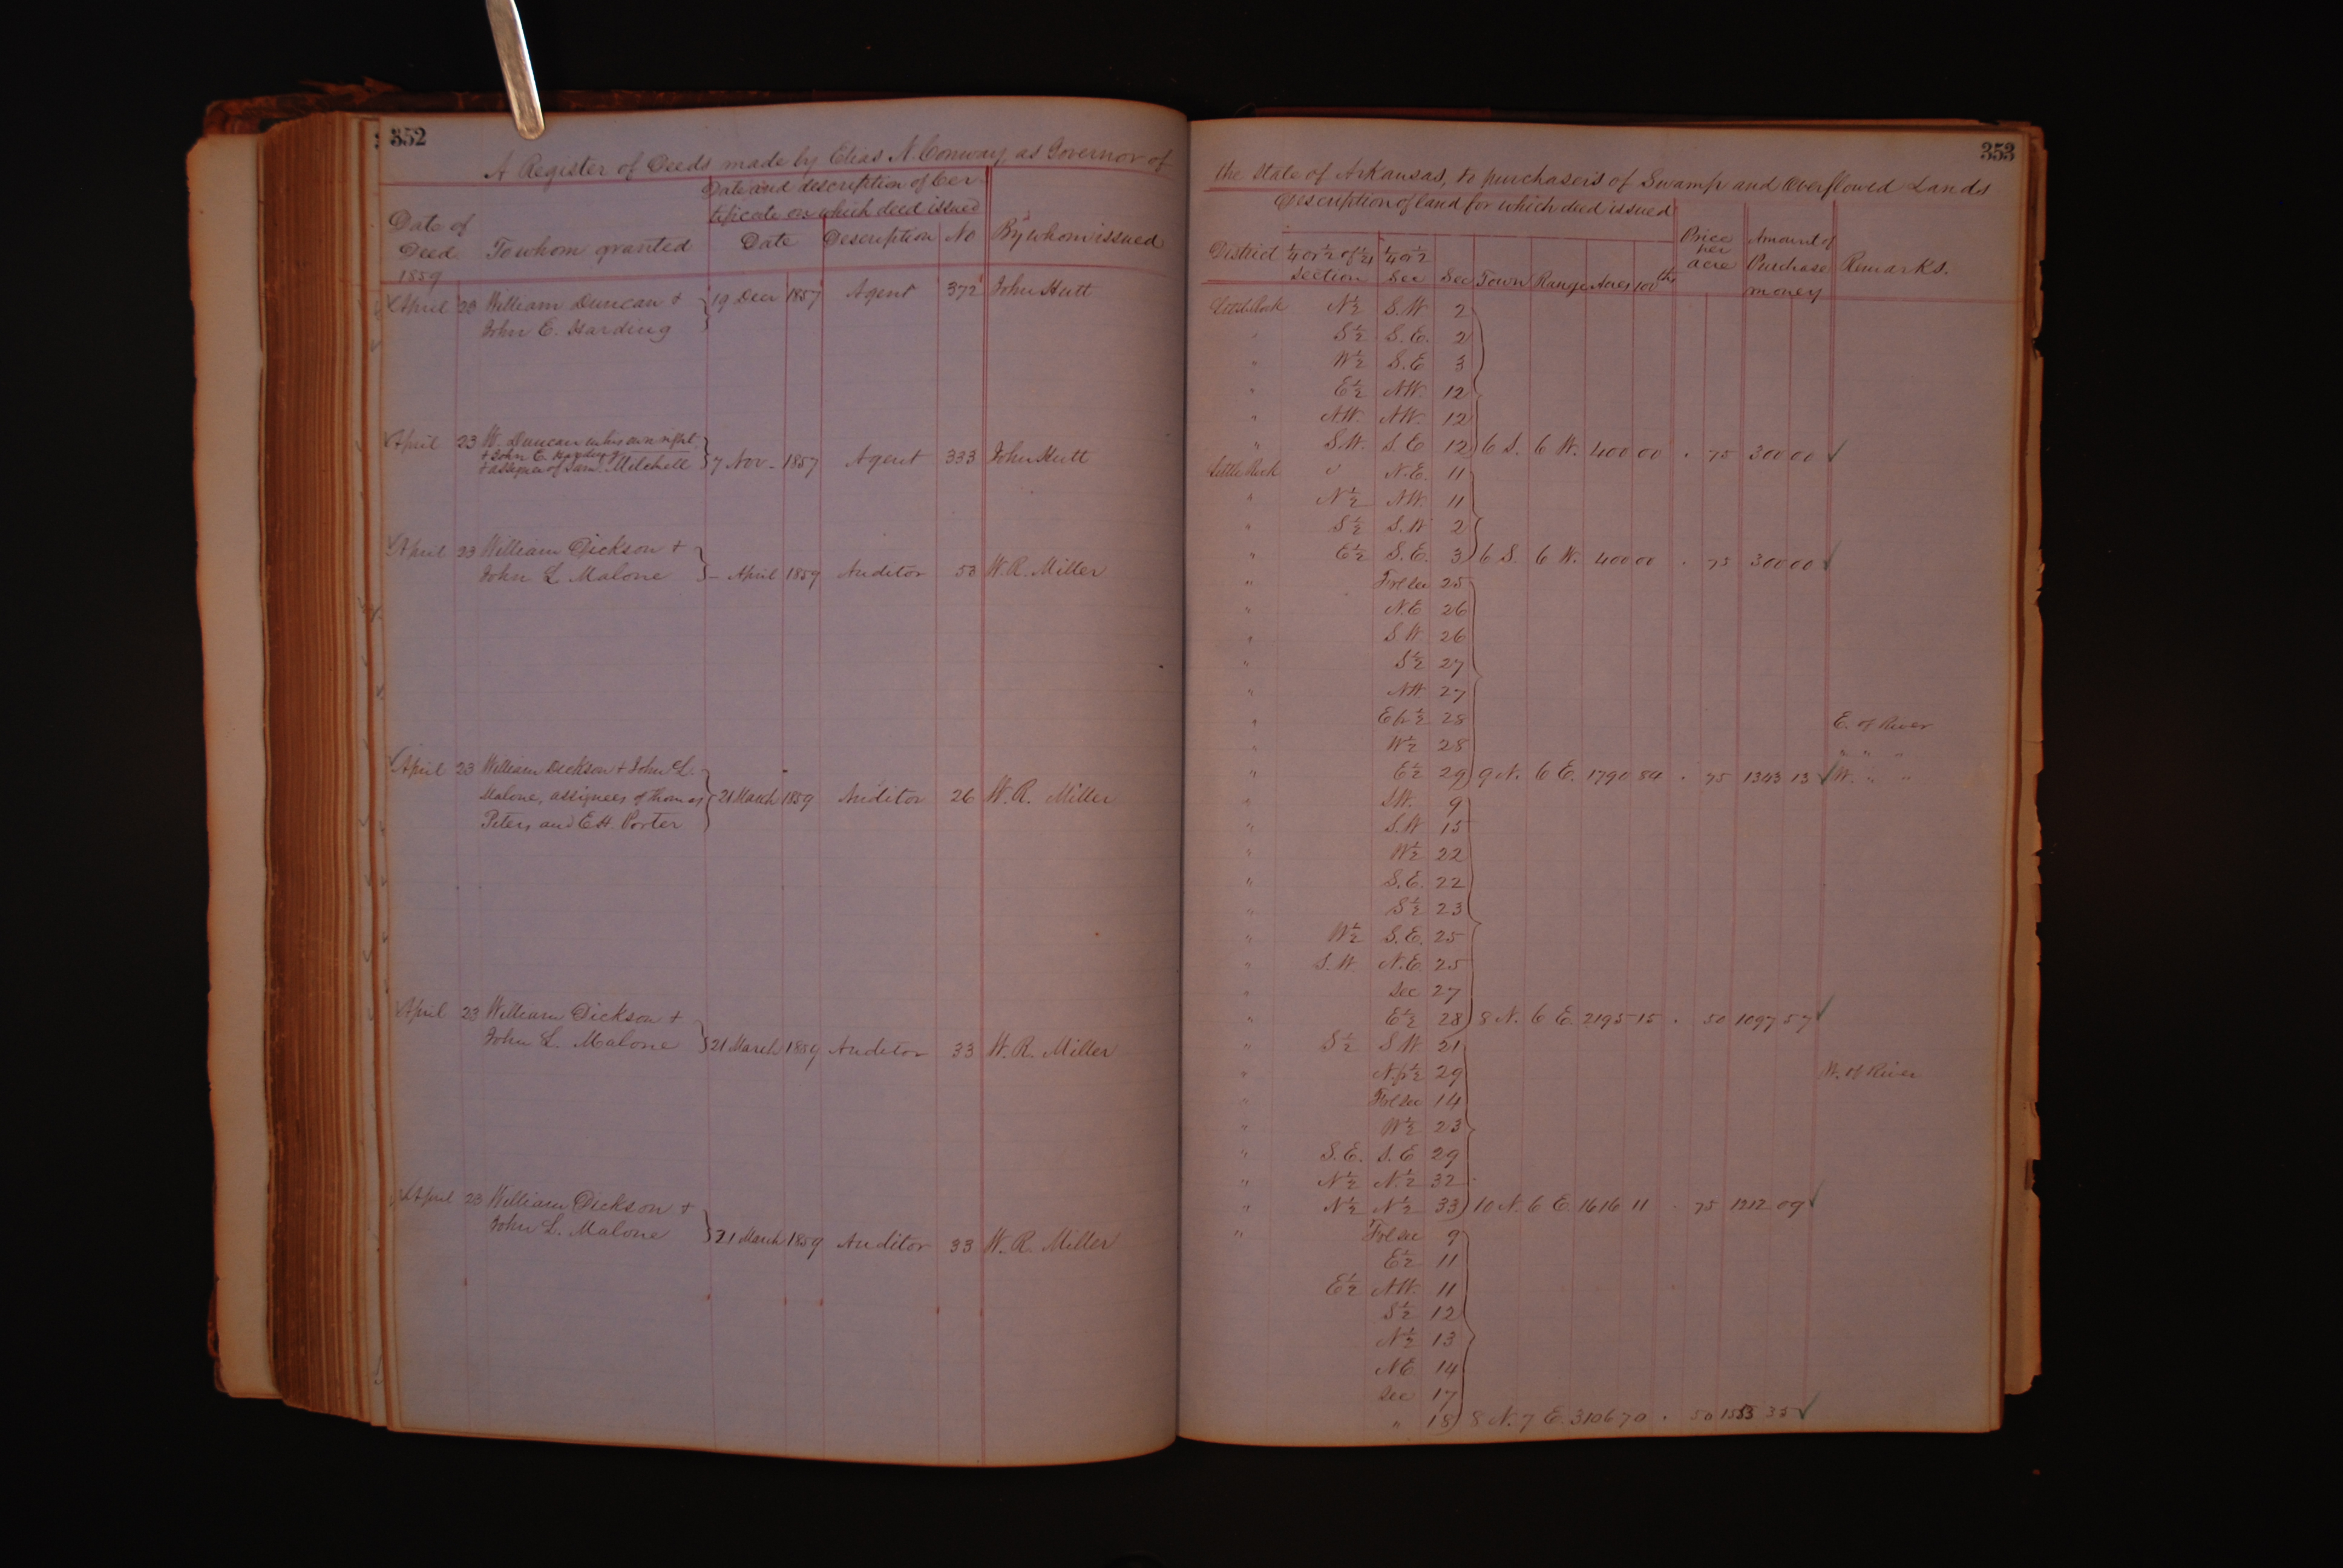 352
A Register of Deeds made by Elias N. Conway, as Governor of
Date and description of Cer-
tificate on which deed issued
Date of
Deed.
1859
To whom granted
Date
Description
No
By whom issued
April 23 William Duncan + } 19 Decr 1857 Agent 372 John Hutt
John E. Harding
April 23 W. Duncan in his own right
+ John E. Harding
+ assignee of Sam. Mitchell } 7 Nov - 1857 Agent 333 John Hutt
April 23 William Dickson +
John L. Malone } - April 1859 Auditor 53 W. R. Miller
April 23 William Dickson + John L.
Malone, assignees of Thomas } 21 March 1859 Auditor 26 W. R. Miller
Peters and E.H. Porter
April 23 William Dickson +
John L. Malone } 21 March 1859 Auditor 33 W. R. Miller
April 23 William Dickson +
John L. Malone } 21 March 1859 Auditor 33 W. R. Miller
353
the State of Arkansas, to purchasers of Swamp and Overflowed Lands
Description of land for which deed issued
District
¼ or ½ of ¼
Section
¼ or ½
Sec
Sec
Town
Range
Acres
100ths
Price
per
acre
Amount of
Purchase
money
Remarks.
Little Rock N½ S.W 2
" S½ S.E. 2
" W½ S.E 3
" E½ N.W. 12
" N.W. N.W. 12
" S.W. S.E 12 6 S. 6 W. 400 00 . 75 300 00 ✓
Little Rock N.E. 11
" N½ N.W. 11
" S½ S.W 2
" E½ S.E. 3 6 S 6 W. 400 00 . 75 300 00 ✓
" Frl sec 25
" N.E 26
" S W 26
" S½ 27
" NW 27
" E fr ½ 28 E. of River
" W½ 28 " " "
" E½ 29 9 N. 6 E. 1790 84 . 75 1343 13 ✓ W. " "
" S.W. 9
" S.W 15
" W½ 22
" S.E. 22
" S½ 23
" W½ S.E. 25
" S.W. N.E. 25
" Sec 27
" E½ 28 8 N. 6 E. 2195 15 . 50 1097 57 ✓
" S½ S W 21
" N.fr½ 29 W. of River
" Frl sec 14
" W½ 23
" S.E. S.E 29
" N½ N½ 32
" N½ N½ 33 10 N. 6 E. 1616 11 . 75 1212 09 ✓
" Frl sec 9
E½ 11
E½ N.W. 11
S½ 12
N½ 13
N E 14
Sec 17
" 18 8 N. 7 E. 3106 70 . 50 1553 35 ✓